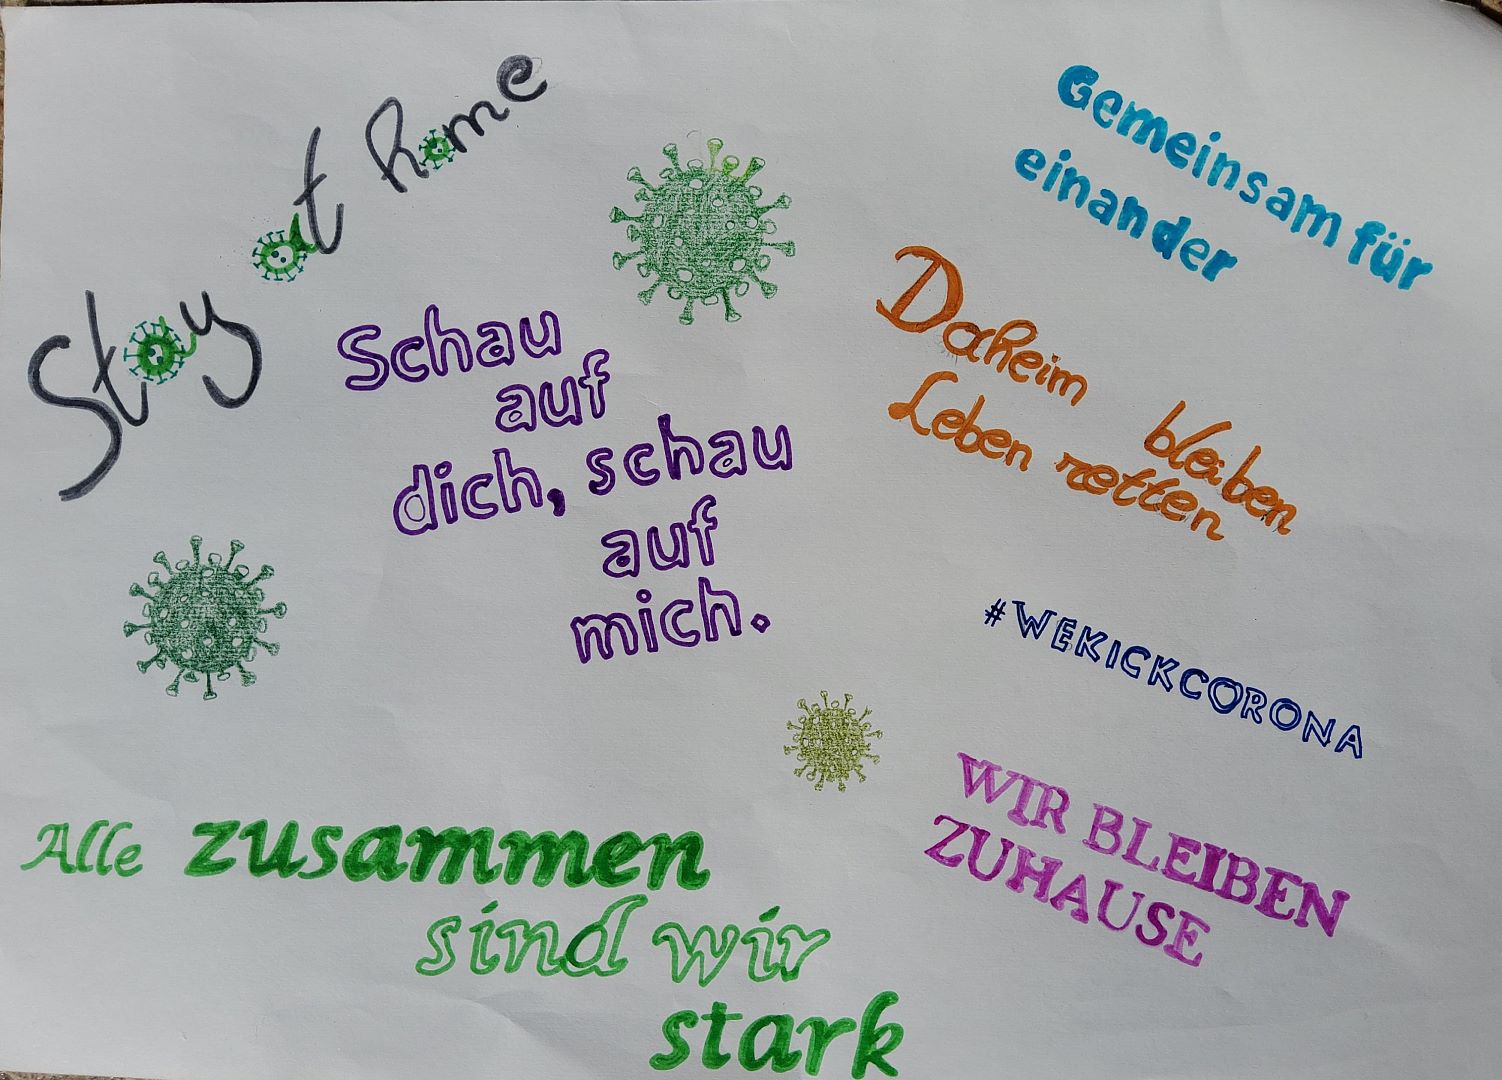 Stay at home
Gemeinsam für
einander
Schau
auf
dich, schau
auf
mich.
Daheim bleiben
Leben retten
#WEKICKCORONA
WIR BLEIBEN
ZUHAUSE
Alle zusammen
sind wir
stark